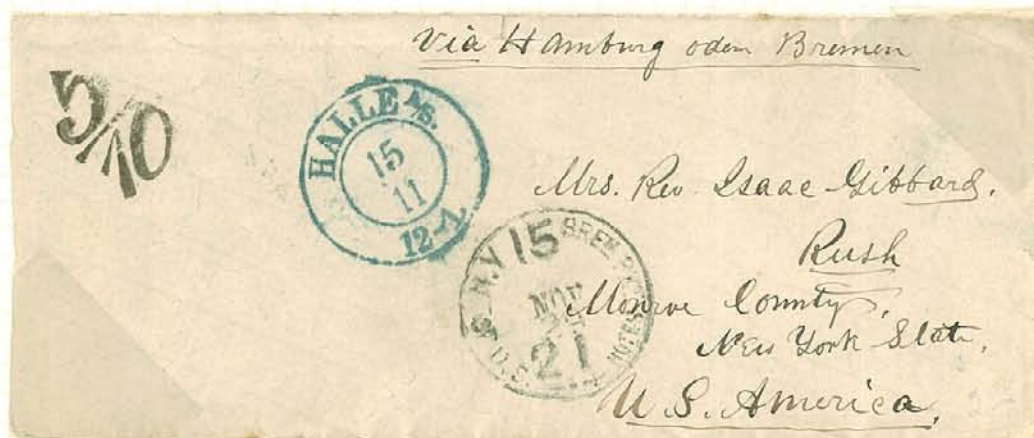 Via Hamburg oder Bremen
5/10
HALLE A/S.
15
11
12-1
N.Y. 15 BREM. PKT.
NOV
21
U.S. NOTES
Mrs. Rev Isaac Gibbard.
Rush
Monroe County,
New York State,
U.S. America,